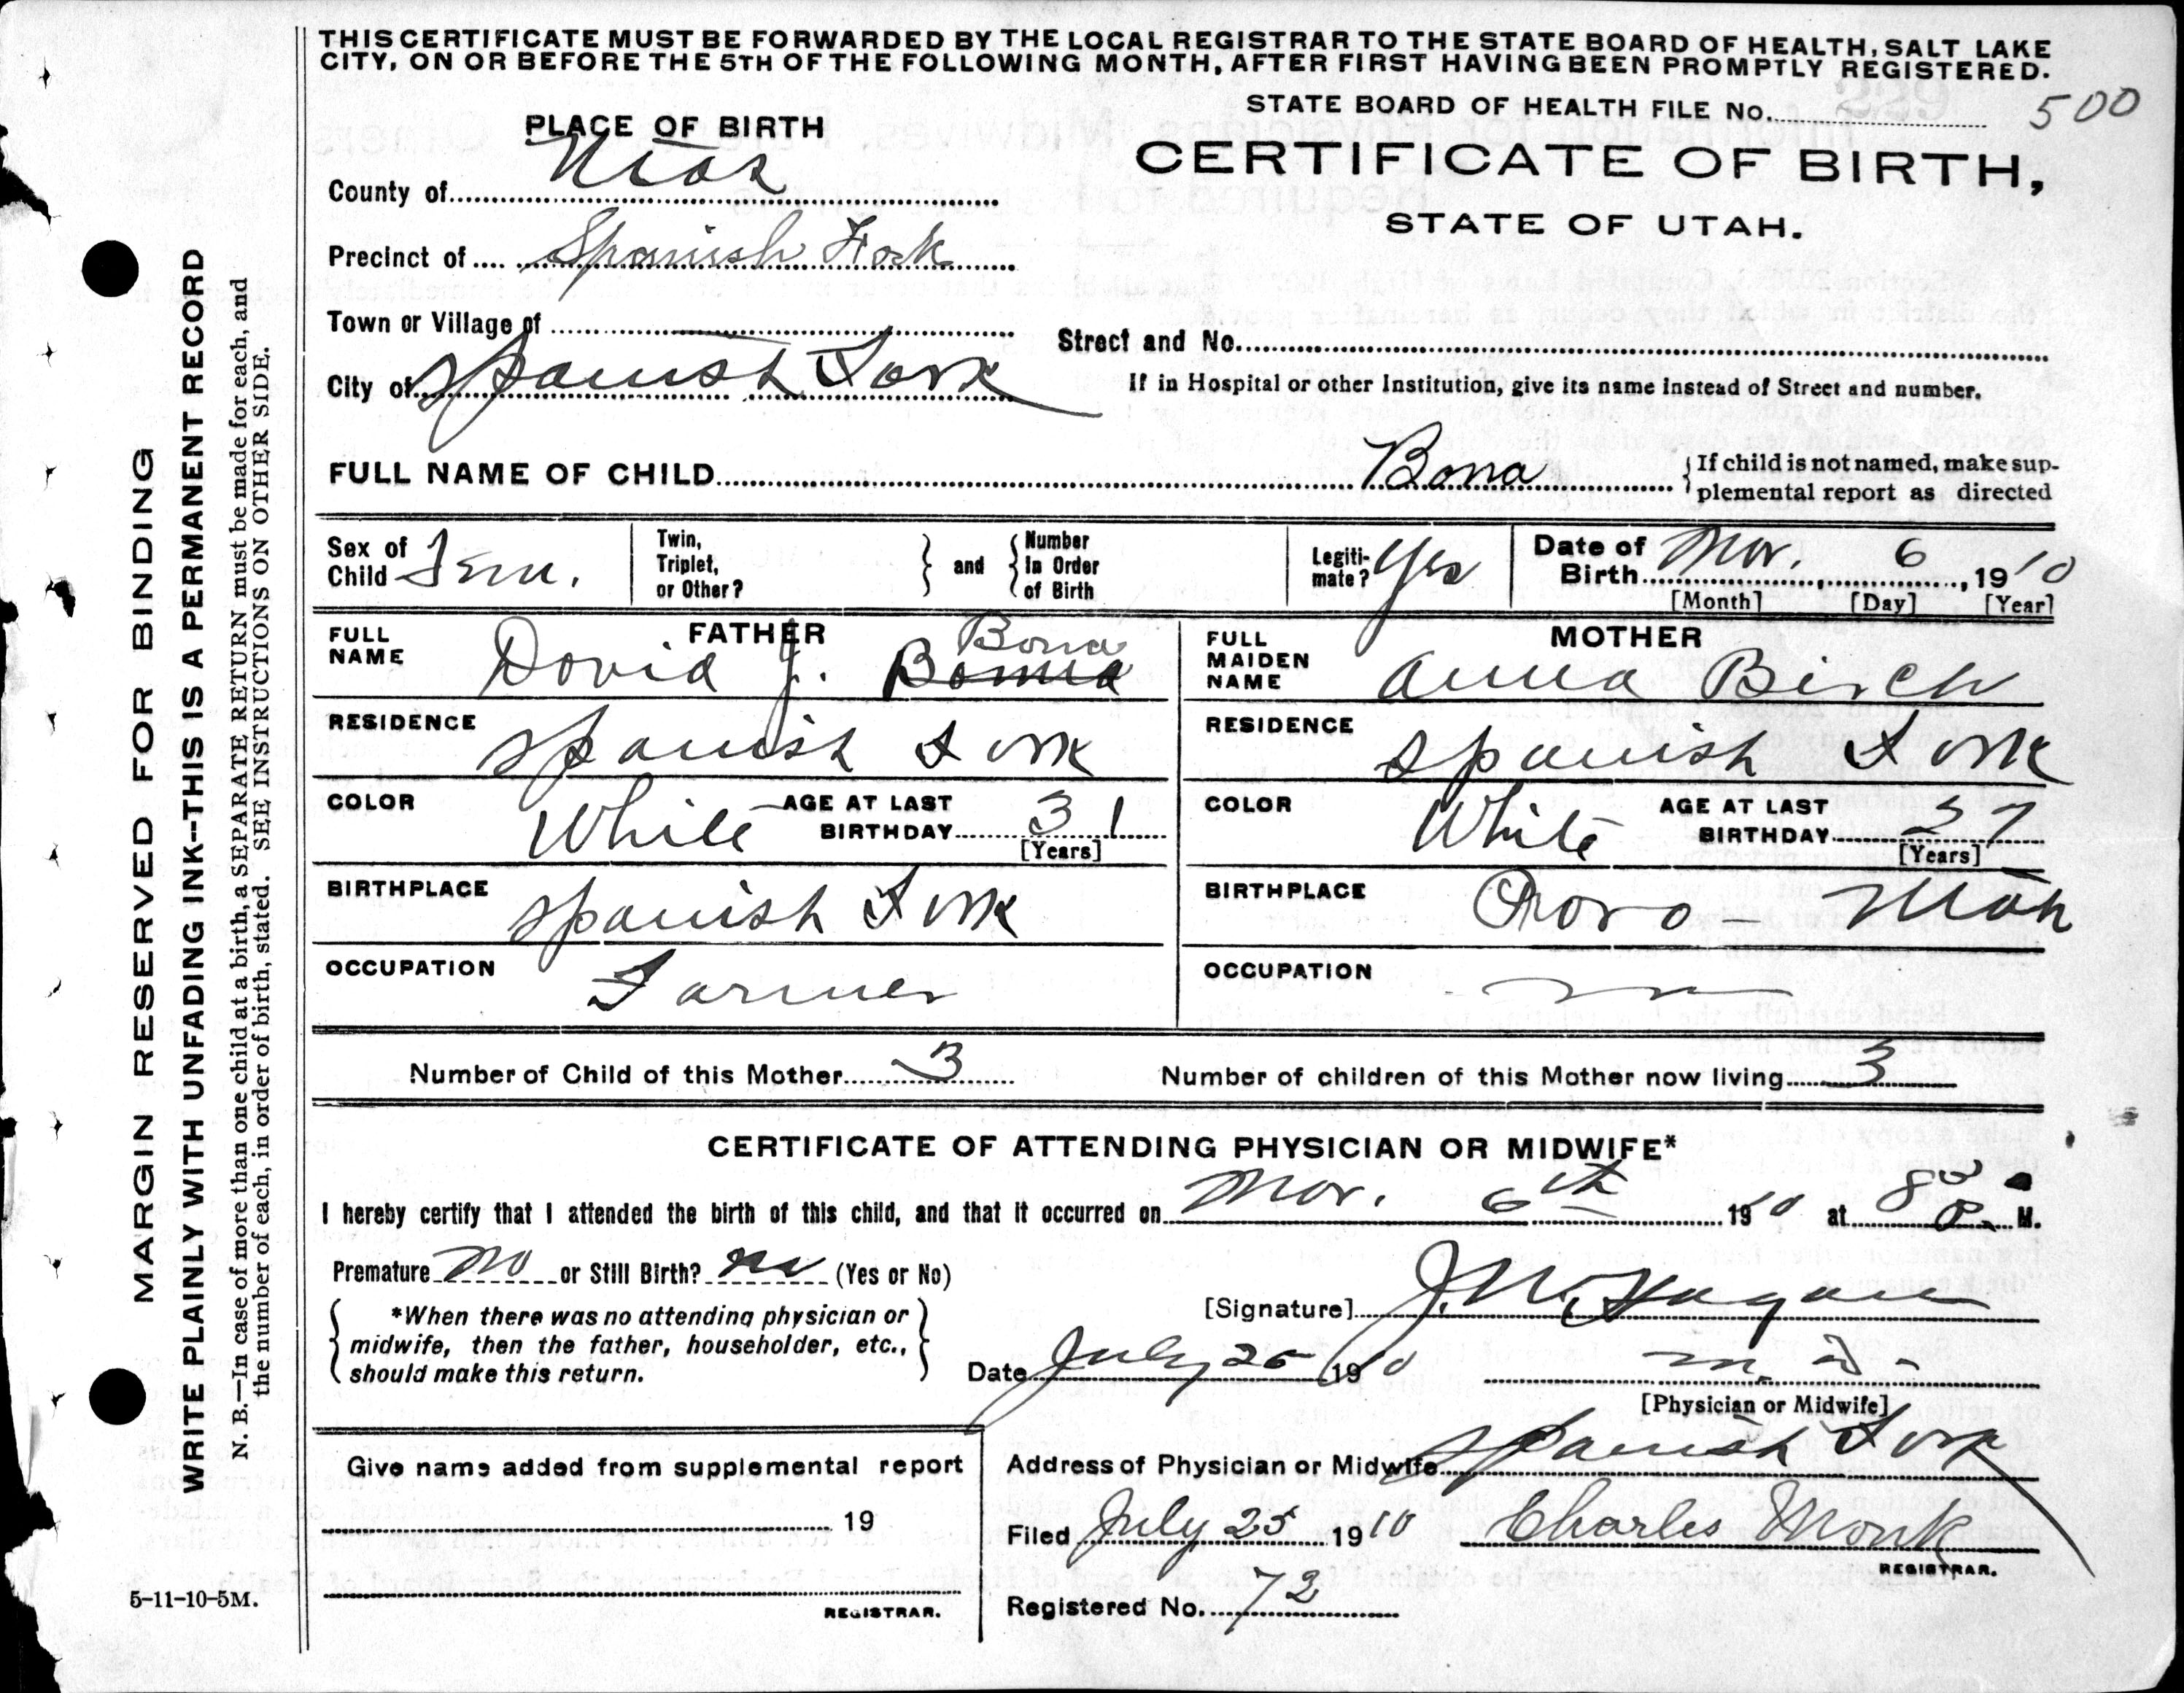 THIS CERTIFICATE MUST BE FORWARDED BY THE LOCAL REGISTRAR TO THE STATE BOARD OF HEALTH, SALT LAKE
CITY, ON OR BEFORE THE 5TH OF THE FOLLOWING MONTH, AFTER FIRST HAVING BEEN PROMPTLY REGISTERED.
STATE BOARD OF HEALTH FILE No. 500
PLACE OF BIRTH
CERTIFICATE OF BIRTH,
STATE OF UTAH.
County of Utah
Precinct of Spanish Fork
Town or Village of
Street and No.
City of Spanish Fork
If in Hospital or other Institution, give its name instead of Street and number.
FULL NAME OF CHILD Bona
If child is not named, make sup-
plemental report as directed
Sex of Child Fem.
Twin, Triplet, or Other?
and
Number In Order of Birth
Legiti-mate? Yes
Date of Birth Mar. 6, 1910
[Month] [Day] [Year]
FATHER
FULL NAME David J. Bona
MOTHER
FULL MAIDEN NAME Anna Birch
RESIDENCE Spanish Fork
RESIDENCE Spanish Fork
COLOR White AGE AT LAST BIRTHDAY 31
[Years]
COLOR White AGE AT LAST BIRTHDAY 27
[Years]
BIRTHPLACE Spanish Fork
BIRTHPLACE Provo - Utah
OCCUPATION Farmer
OCCUPATION
Number of Child of this Mother 3
Number of children of this Mother now living 3
CERTIFICATE OF ATTENDING PHYSICIAN OR MIDWIFE*
I hereby certify that I attended the birth of this child, and that it occurred on Mar. 6th 1910 at 8 P. M.
Premature no or Still Birth? no (Yes or No)
*When there was no attending physician or
midwife, then the father, householder, etc.,
should make this return.
[Signature] J. W. Hagan
Date July 25 1910
M. D.
[Physician or Midwife]
Give name added from supplemental report
19
REGISTRAR.
Address of Physician or Midwife Spanish Fork
Filed July 25 1910 Charles Monk
REGISTRAR.
Registered No. 72
MARGIN RESERVED FOR BINDING
WRITE PLAINLY WITH UNFADING INK--THIS IS A PERMANENT RECORD
N. B.—In case of more than one child at a birth, a SEPARATE RETURN must be made for each, and
the number of each, in order of birth, stated. SEE INSTRUCTIONS ON OTHER SIDE.
5-11-10-5M.